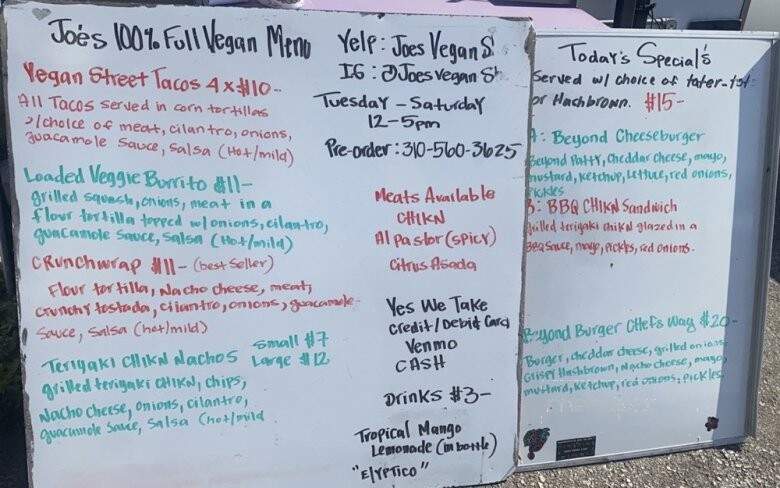 Joe's 100% Full Vegan Menu
Vegan Street Tacos 4x$10-
All Tacos served in corn tortillas
w/choice of meat, cilantro, onions,
guacamole sauce, salsa (Hot/mild)
Loaded Veggie Burrito $11-
grilled squash, onions, meat in a
flour tortilla topped w/onions, cilantro,
guacamole sauce, salsa (Hot/mild)
Crunchwrap $11- (best seller)
Flour tortilla, Nacho cheese, meat,
crunchy tostada, cilantro, onions, guacamole
sauce, salsa (hot/mild)
Teriyaki CHIKN Nachos small $7
Large $12
grilled teriyaki CHIKN, chips,
Nacho cheese, onions, cilantro,
guacamole sauce, salsa (hot/mild
Yelp: Joes Vegan S
IG: @Joesvegan S
Tuesday - Saturday
12-5pm
Pre-order: 310-560-3625
Meats Available
CHIKN
Al Pastor (spicy)
Citrus Asada
Yes We Take
Credit/Debit Card
Venmo
CASH
Drinks $3-
Tropical Mango
Lemonade (in bottle)
"Elyptico"
Today's Special's
Served w/ choice of tater-tot
or Hashbrown. $15-
A: Beyond Cheeseburger
Beyond Patty, cheddar cheese, mayo,
mustard, ketchup, lettuce, red onions,
Pickles
B: BBQ CHIKN Sandwich
grilled teriyaki chikn glazed in a
BBQ sauce, mayo, pickles, red onions.
Beyond Burger Chefs Way $20-
Burger, cheddar cheese, grilled onions
crispy Hashbrown, Nacho cheese, mayo,
mustard, ketchup, red onions, pickles.